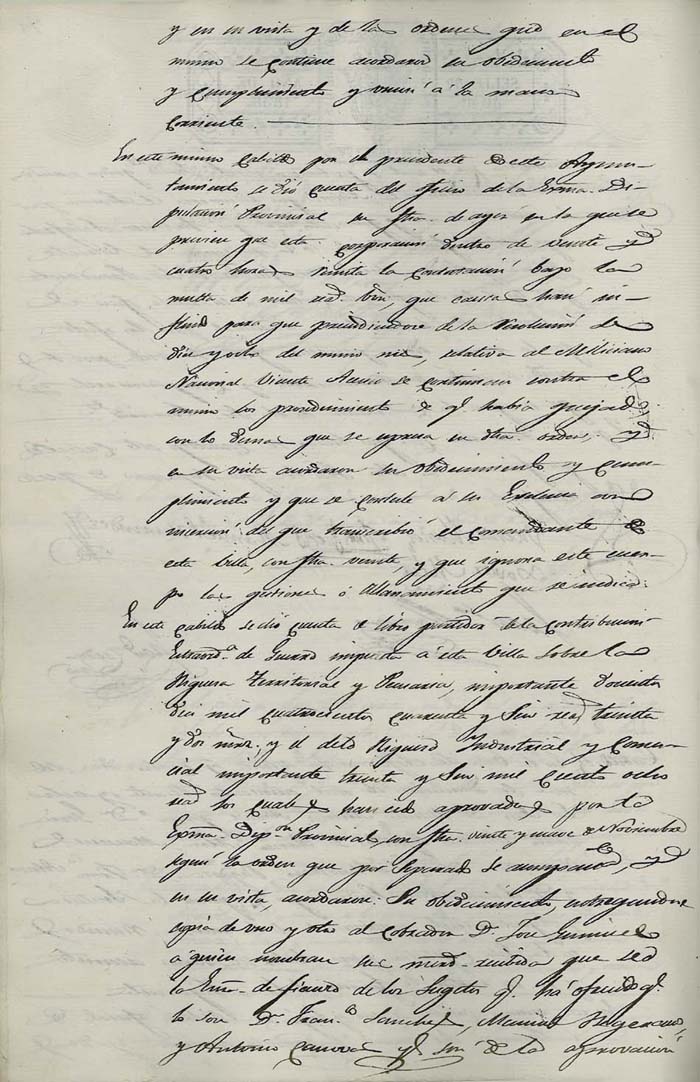 y en su vista y de las ordenes que en el
mismo se contiene acordaron su obedecimiento
y cumplimiento y unirá á la mano
corriente.
En este mismo Cabildo por el presidente de este Ayun-
tamiento se dió cuenta del oficio de la Exma. Di-
putación Provincial su fha. de ayer en la que se
previene que esta corporación dentro de veinte y
cuatro horas remita la contestación bajo la
multa de mil rea.s von, que causas han in-
fluido para que prescindiendose de la resolución de
diez y ocho del mismo mes, relativa al Miliciano
Nacional Vicente se continuen contra el
mismo los procedimientos de q.e habia quejado
con lo demas que se espresa en dha. orden; y
en su vista acordaron su obedecimiento y cum-
plimiento y que se conteste á su Exelencia con
inserción del que transcribió el Comandante de
esta Villa, con fha. veinte, y que ignora este cuer-
po las gestiones ó allanamiento que se indica.
En este Cabildo se dió cuenta de libro de la Contribución
Extraord.a de Guerra impuesta á esta Villa sobre la
Riqueza Territorial y Pecuaria, importante Docientos
diez mil cuatrocientos cuarenta y seis rea.s treinta
y dos mrs.; y el de la Riqueza Industrial y Comer-
cial importante treinta y seis mil ciento ocho
rea.s los cuales han sido aprovados por la
Exma. Dip.on Provincial con fha. veinte y nueve de Noviembre
según la orden que por separado se acompaña, y
en su vista, acordaron: Su obedecimiento, entregandose
copia de uno y otro al cobrador D. José
á quien nombran recibida que sea
la de fianza de los sugetos q.e há ofrecido q.e
lo son D. Fran.co Sanchez, Manuel
y Antonio Canovas y son de la aprovación